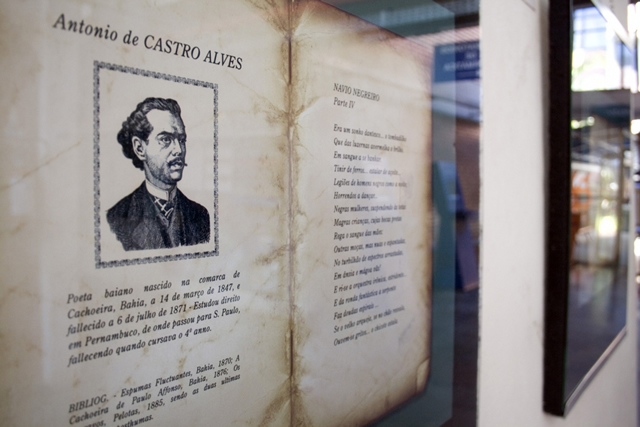 Antonio de CASTRO ALVES
Poeta baiano nascido na comarca de
Cachoeira, Bahia, a 14 de março de 1847, e
fallecido a 6 de julho de 1871 - Estudou direito
em Pernambuco, de onde passou para S. Paulo,
fallecendo quando cursava o 4º anno.
BIBLIOG. - Espumas Fluctuantes, Bahia, 1870; A
Cachoeira de Paulo Affonso, Bahia, 1876; Os
Pelotas, 1885, sendo as duas ultimas
NAVIO NEGREIRO
Parte IV
Era um sonho dantesco... o tombadilho
Que das luzernas avermelha o brilho,
Em sangue a se banhar
Tinir de ferros... estalar do açoite...
Legiões de homens negros como a noite,
Horrendos a dançar...
Negras mulheres, suspendendo às tetas
Magras crianças, cujas bocas pretas
Rega o sangue das mães:
Outras moças, mas nuas e espantadas,
No turbilhão de espectros arrastadas,
Em ânsia e mágoa vãs!
E ri-se a orquestra irônica, estridente...
E da ronda fantástica a serpente
Faz doudas espirais...
Se o velho arqueja, se no chão resvala,
Ouvem-se gritos... o chicote estala.